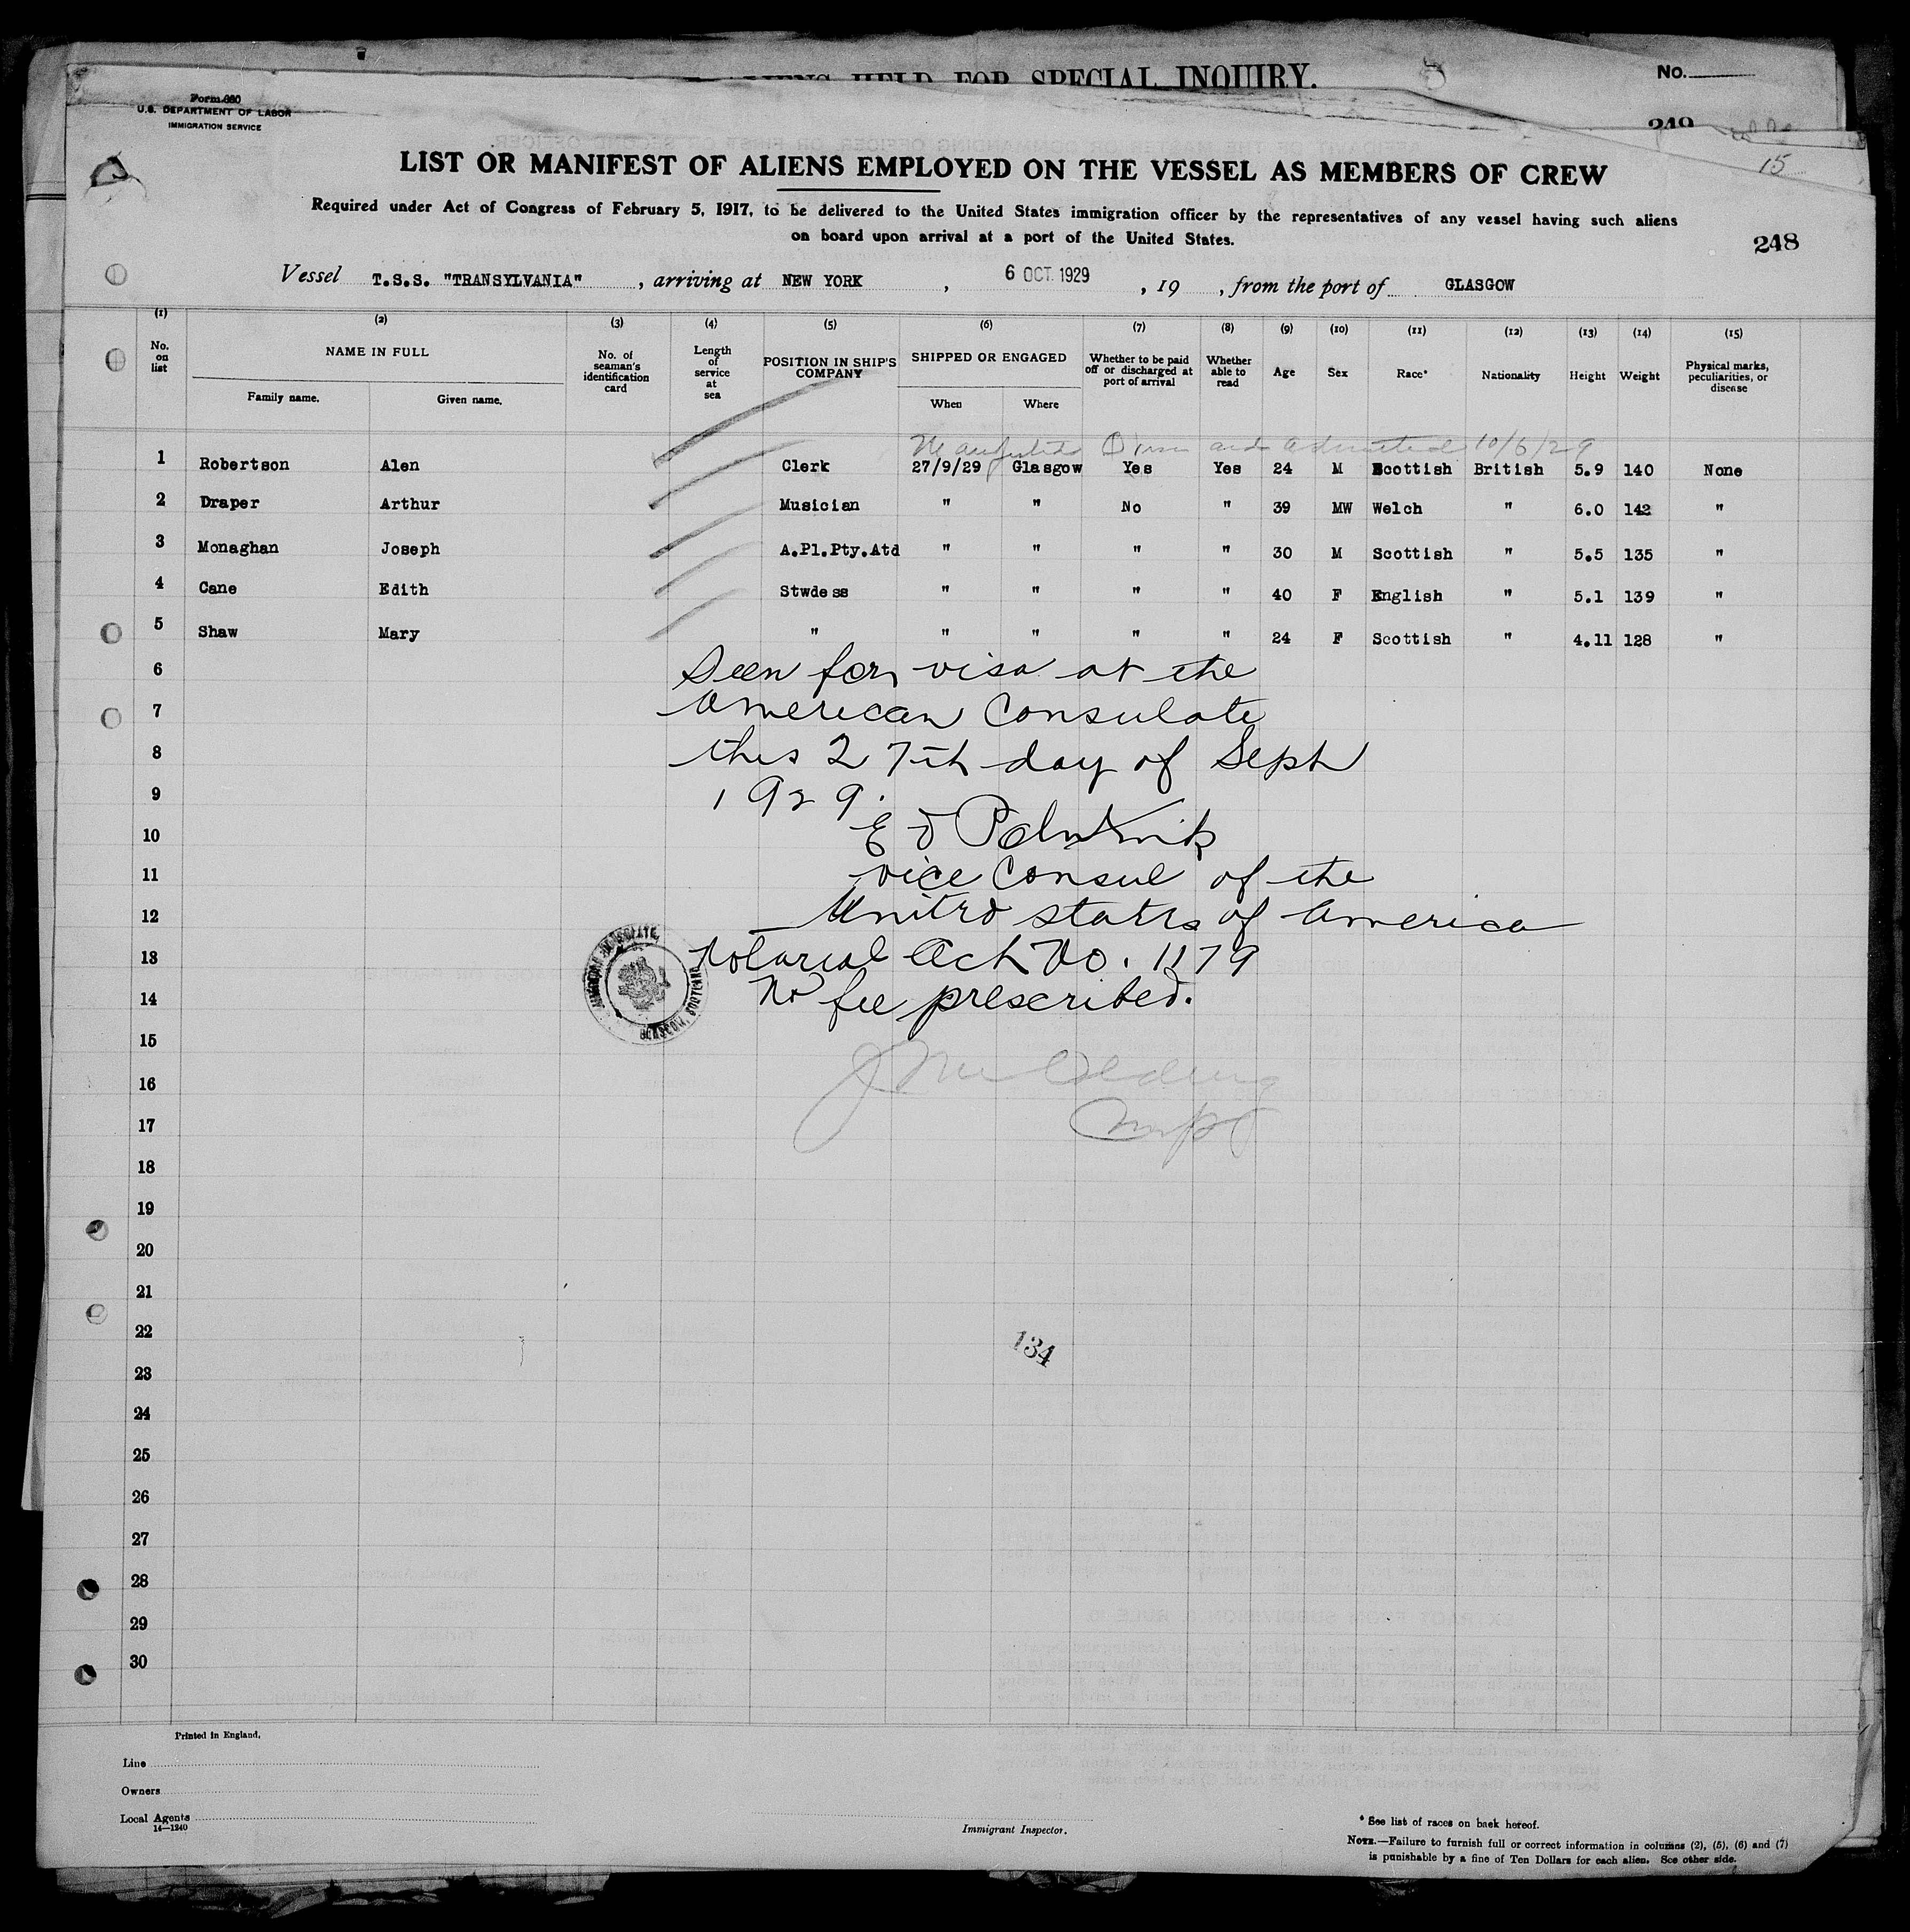 HELD FOR SPECIAL INQUIRY.
No.
249
Form 680
U.S. DEPARTMENT OF LABOR
IMMIGRATION SERVICE
15
LIST OR MANIFEST OF ALIENS EMPLOYED ON THE VESSEL AS MEMBERS OF CREW
Required under Act of Congress of February 5, 1917, to be delivered to the United States immigration officer by the representatives of any vessel having such aliens
on board upon arrival at a port of the United States.
248
Vessel T.S.S. "TRANSYLVANIA", arriving at NEW YORK, 6 OCT 1929, 19 , from the port of GLASGOW
(1) (2) (3) (4) (5) (6) (7) (8) (9) (10) (11) (12) (13) (14) (15)
No. on list NAME IN FULL Family name. Given name. No. of seaman's identification card Length of service at sea POSITION IN SHIP'S COMPANY SHIPPED OR ENGAGED When Where Whether to be paid off or discharged at port of arrival Whether able to read Age Sex Race* Nationality Height Weight Physical marks, peculiarities, or disease
and admitted 10/6/29
1 Robertson Alen Clerk 27/9/29 Glasgow Yes Yes 24 M Scottish British 5.9 140 None
2 Draper Arthur Musician " " No " 39 MW Welch " 6.0 142 "
3 Monaghan Joseph A.Pl.Pty.Atd " " " " 30 M Scottish " 5.5 135 "
4 Cane Edith Stwdess " " " " 40 F English " 5.1 139 "
5 Shaw Mary " " " " " 24 F Scottish " 4.11 128 "
6 Seen for visa at the
7 American Consulate
8 this 27th day of Sept
9 1929.
10
11 vice Consul of the
12 United States of America
13 Notarial Act No. 1179
14 No fee prescribed.
AMERICAN CONSULATE, GLASGOW, SCOTLAND
15
16
17
18
19
20
21
22
134
23
24
25
26
27
28
29
30
Printed in England.
Line
Owners
Local Agents
14—1240
Immigrant Inspector.
* See list of races on back hereof.
NOTE.—Failure to furnish full or correct information in columns (2), (5), (6) and (7)
is punishable by a fine of Ten Dollars for each alien. See other side.